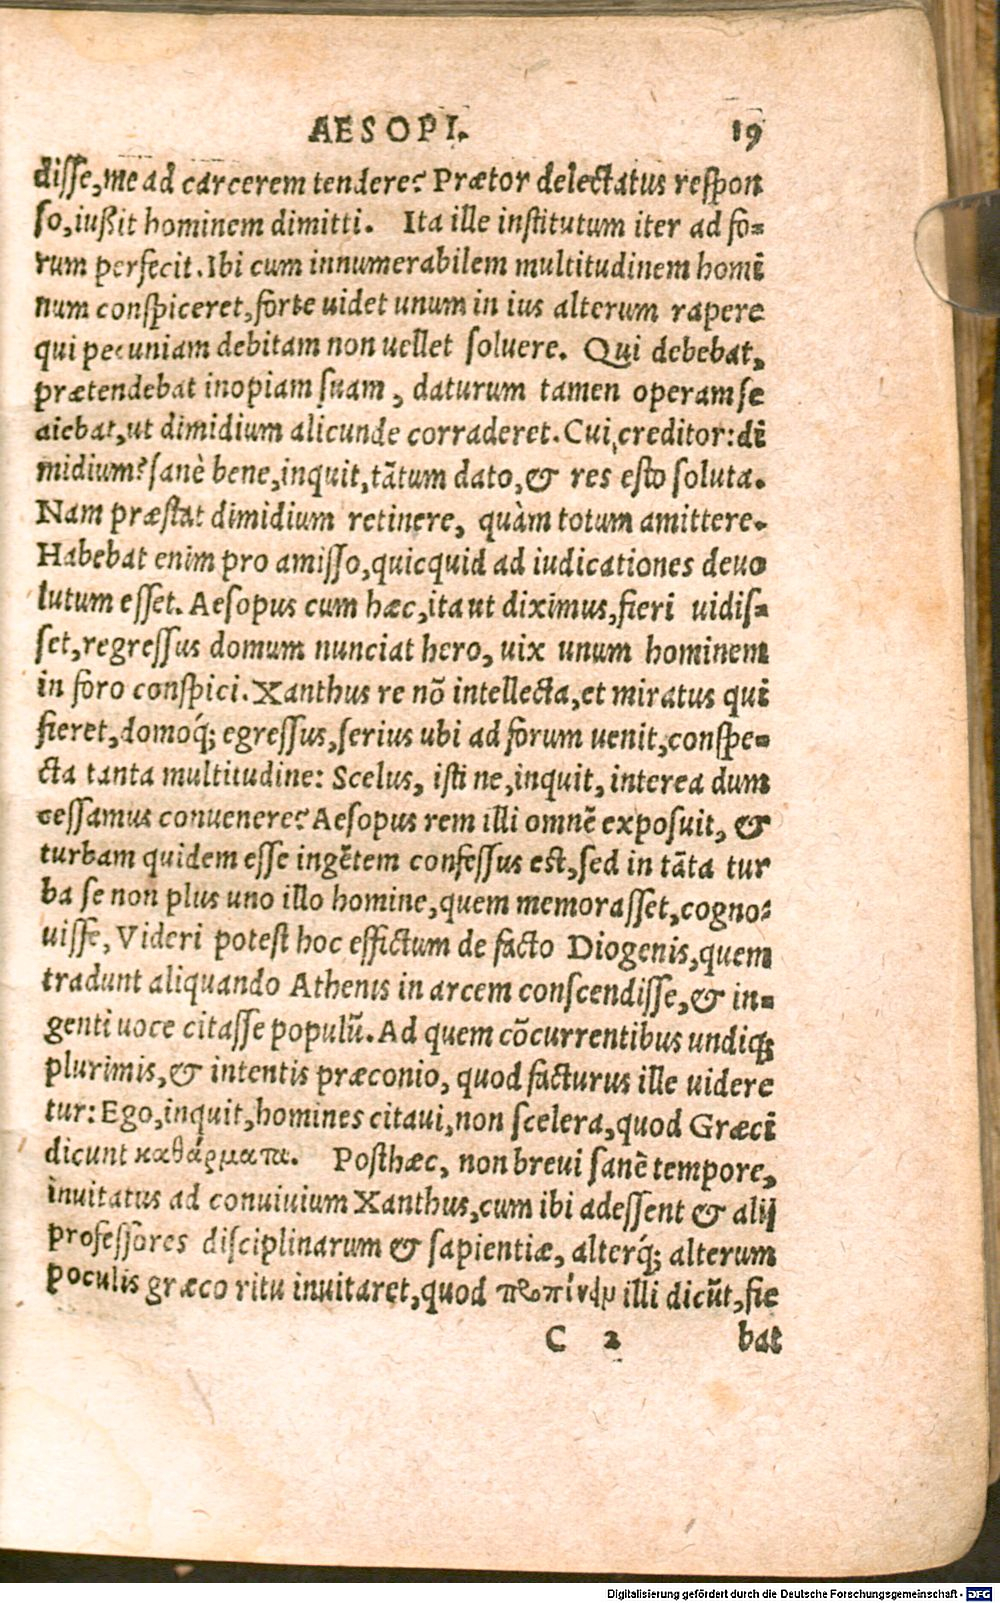 AESOPI. 19
disse, me ad carcerem tendere? Prætor delectatus respon
so, iußit hominem dimitti. Ita ille institutum iter ad fo=
rum perfecit. Ibi cum innumerabilem multitudinem homĩ
num conspiceret, forte uidet unum in ius alterum rapere
qui pecuniam debitam non uellet soluere. Qui debebat,
prætendebat inopiam suam, daturum tamen operam se
aiebat, ut dimidium alicunde corraderet. Cui creditor: dĩ
midium? sanè bene, inquit, tãtum dato, & res esto soluta.
Nam præstat dimidium retinere, quàm totum amittere.
Habebat enim pro amisso, quicquid ad iudicationes deuo
lutum esset. Aesopus cum hæc, ita ut diximus, fieri uidis=
set, regressus domum nunciat hero, uix unum hominem
in foro conspici. Xanthus re nõ intellecta, et miratus qui
fieret, domoq́; egressus, serius ubi ad forum uenit, conspe=
cta tanta multitudine: Scelus, isti ne, inquit, interea dum
cessamus conuenere? Aesopus rem illi omnẽ exposuit, &
turbam quidem esse ingẽtem confessus est, sed in tãta tur
ba se non plus uno illo homine, quem memorasset, cogno=
uisse, Videri potest hoc effictum de facto Diogenis, quem
tradunt aliquando Athenis in arcem conscendisse, & in=
genti uoce citasse populũ. Ad quem cõcurrentibus undiq;
plurimis, & intentis præconio, quod facturus ille uidere
tur: Ego, inquit, homines citaui, non scelera, quod Græci
dicunt καθάρματα. Posthæc, non brevi sanẽ tempore,
inuitatus ad conuiuium Xanthus, cum ibi adessent & alij
professores disciplinarum & sapientiæ, alterq́; alterum
poculis græco ritu inuitaret, quod προπίνειν illi dicũt, fie
C 2 bat
Digitalisierung gefördert durch die Deutsche Forschungsgemeinschaft - DFG